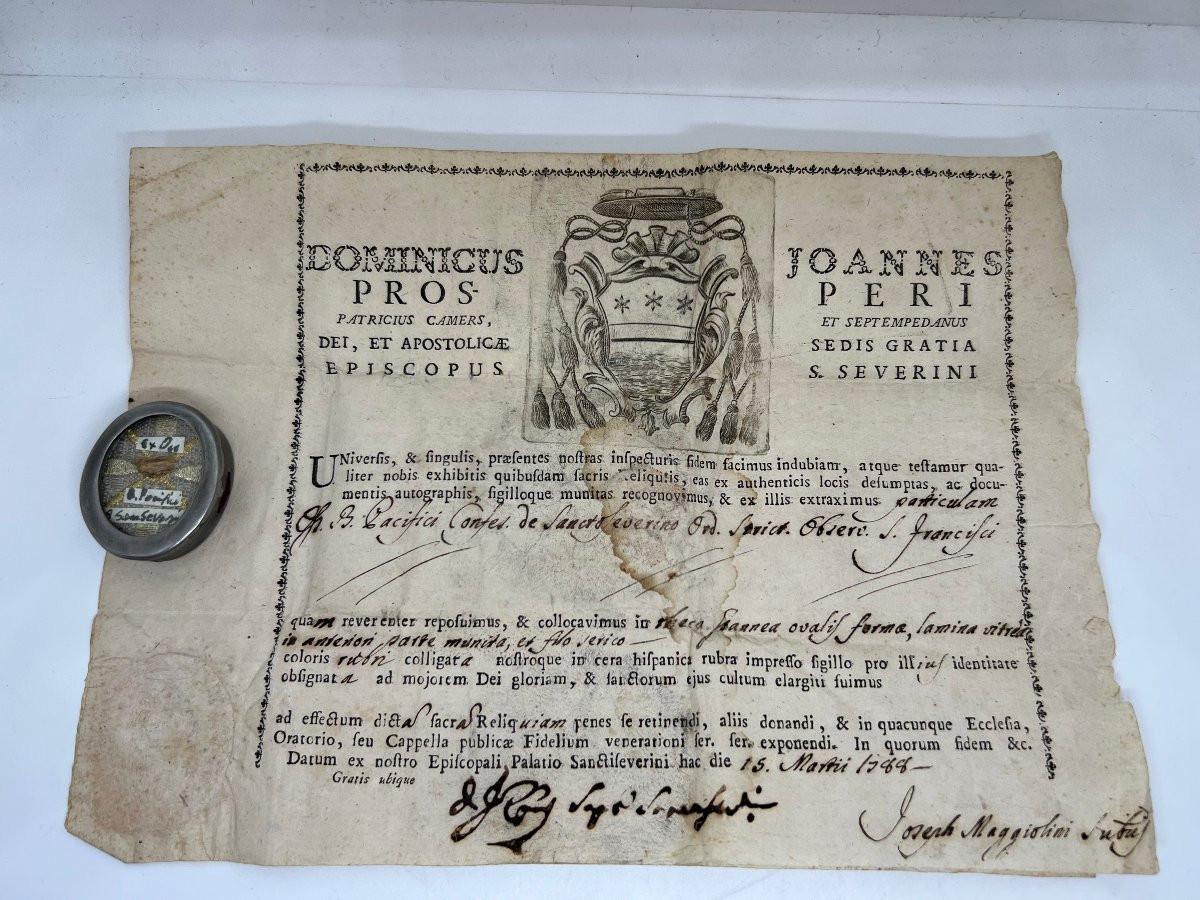 DOMINICUS JOANNES
PROS- PERI
PATRICIUS CAMERS, ET SEPTEMPEDANUS
DEI, ET APOSTOLICÆ SEDIS GRATIA
EPISCOPUS S. SEVERINI
UNiversis, & singulis, præsentes nostras inspecturis fidem facimus indubiam, atque testamur qua-
liter nobis exhibitis quibusdam sacris Reliquiis, eas ex authenticis locis desumptas, ac docu-
mentis autographis, sigilloque munitas recognovimus, & ex illis extraximus particulam
B. Pacifici Confes. de Sanctoseverino Ord. Strict. Observ. S. Francisci
quam reverenter reposuimus, & collocavimus in theca ovalis formæ, lamina vitrea
in anteriori parte munita, et filo serico
coloris rubri colligata nostroque in cera hispanica rubra impresso sigillo pro illius identitate
obsignata ad mojorem Dei gloriam, & sanctorum ejus cultum elargiti fuimus
ad effectum dictas sacras Reliquiam penes se retinendi, aliis donandi, & in quacunque Ecclesia,
Oratorio, seu Cappella publicæ Fidelium venerationi ser. ser. exponendi. In quorum fidem &c.
Datum ex nostro Episcopali Palatio Sanctiseverini hac die 15. Martii 1788
Gratis ubique
Joseph Maggiolini
ex Oss
B. Pacifici